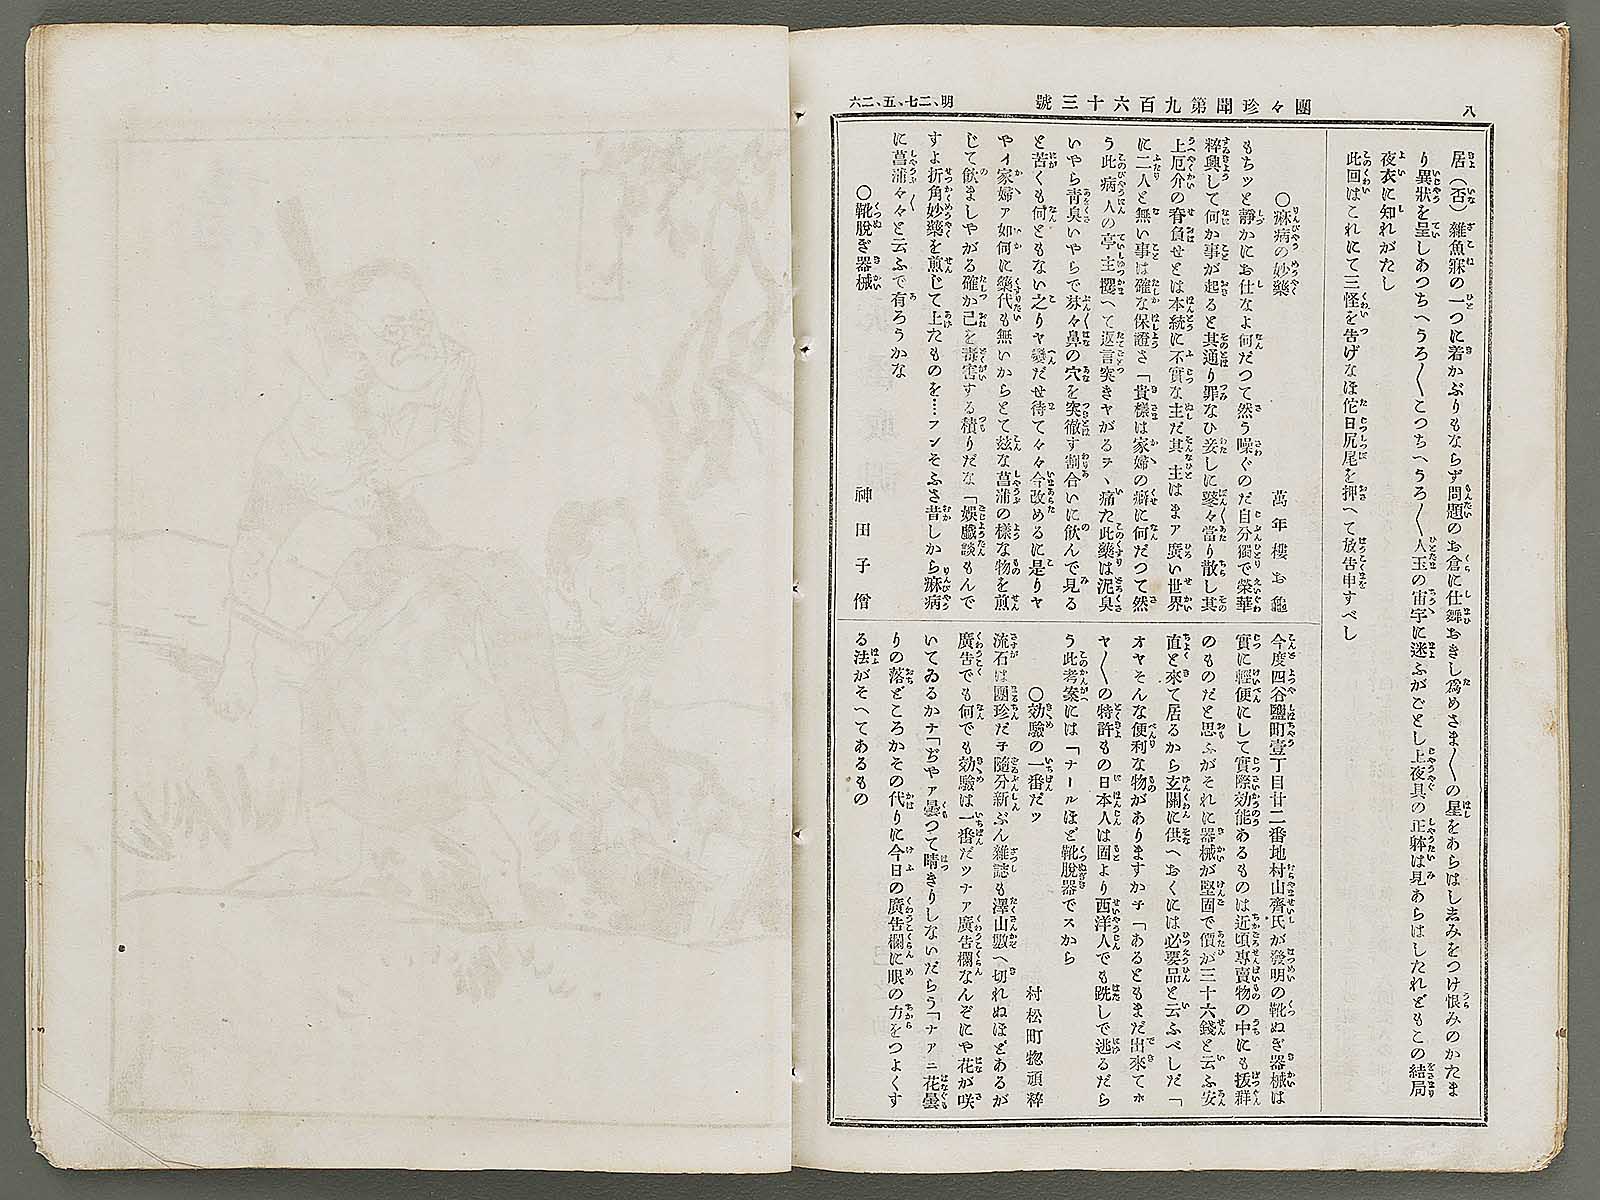 八
團々珍聞第九百六十三號
明、二七、五、二六
居（否）雜魚寐の一つに着かぶりもならず問題のお倉に仕舞おきし爲めさま〲の星をあらはし志みをつけ恨みのかたま
り異狀を呈しあつちへうろ〱こつちへうろ〱人玉の宙宇に迷ふがごとし上夜具の正躰は見あらはしたれどもこの結局
夜衣に知れがたし
此回はこれにて三怪を告げなほ佗日尻尾を押へて放告申すべし
〇痳病の妙藥
萬年樓お龜
もちッと靜かにお仕なよ何だつて然う噪ぐのだ自分獨で榮華
粹興して何か事が起ると其通り罪なひ妾しに鐚々當り散し其
上厄介の脊負せとは本統に不實な主だ其主はまア廣い世界
に二人と無い事は確な保證さ「貴樣は家婦の癖に何だつて然
う此病人の亭主攫へて返言突きヤがるヲヽ痛た此藥は泥臭
いやら靑臭いやらで芬々鼻の穴を突徹す割合いに飮んで見る
と苦くも何ともない之りヤ變だせ待て々々今改めるに是りヤ
やイ家婦ァ如何に藥代も無いからとて玆な菖蒲の樣な物を煎
じて飮ましやがる確か己を毒害する積りだな「娯戲談もんで
すよ折角妙藥を煎じて上たものを‥‥フンそふさ昔しから痳病
に菖蒲々々と云ふで有ろうかな
〇靴脫ぎ器械
神田子僧
今度四谷鹽町壹丁目廿二番地村山齊氏が發明の靴ぬぎ器械は
實に輕便にして實際効能あるものは近頃專賣物の中にも拔群
のものだと思ふがそれに器械が堅固で價が三十六錢と云ふ安
直と來て居るから玄關に供へおくには必要品と云ふべしだ「
オヤそんな便利な物がありますか子「あるともまだ出來てホ
ヤ〱の特許もの日本人は固より西洋人でも跣しで逃るだら
う此考案には「ナールほど靴脫器でスから
〇効驗の一番だッ
村松町惣頑粹
流石は團珍だ子隨分新ぶん雜誌も澤山數へ切れぬほどあるが
廣告でも何でも効驗は一番だッナァ廣告欄なんぞにや花が咲
いてゐるかナ「ぢやァ曇つて晴きりしないだらう「ナアニ花曇
りの落どころかその代りに今日の廣告欄に眼の力をつよくす
る法がそへてあるもの